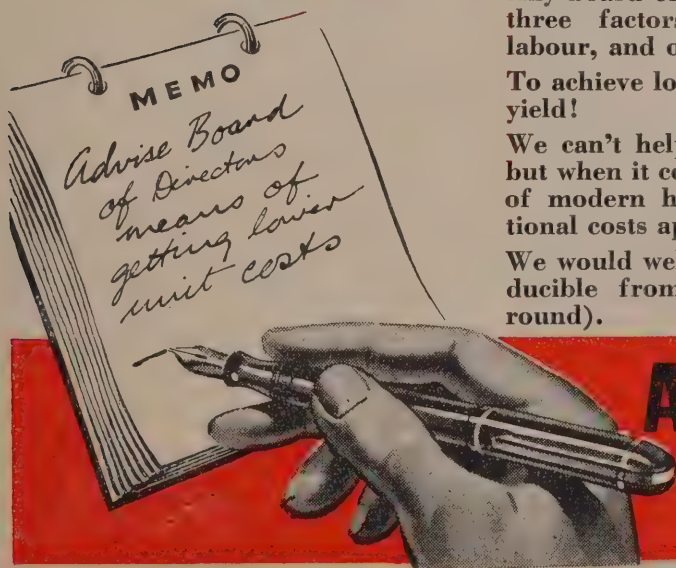 MEMO
Advise Board
of Directors
means of
getting lower
unit costs
three factors
labour, and
To achieve
yield!
We can't
but when it
of modern
tional costs
We would
ducible from
round).
A